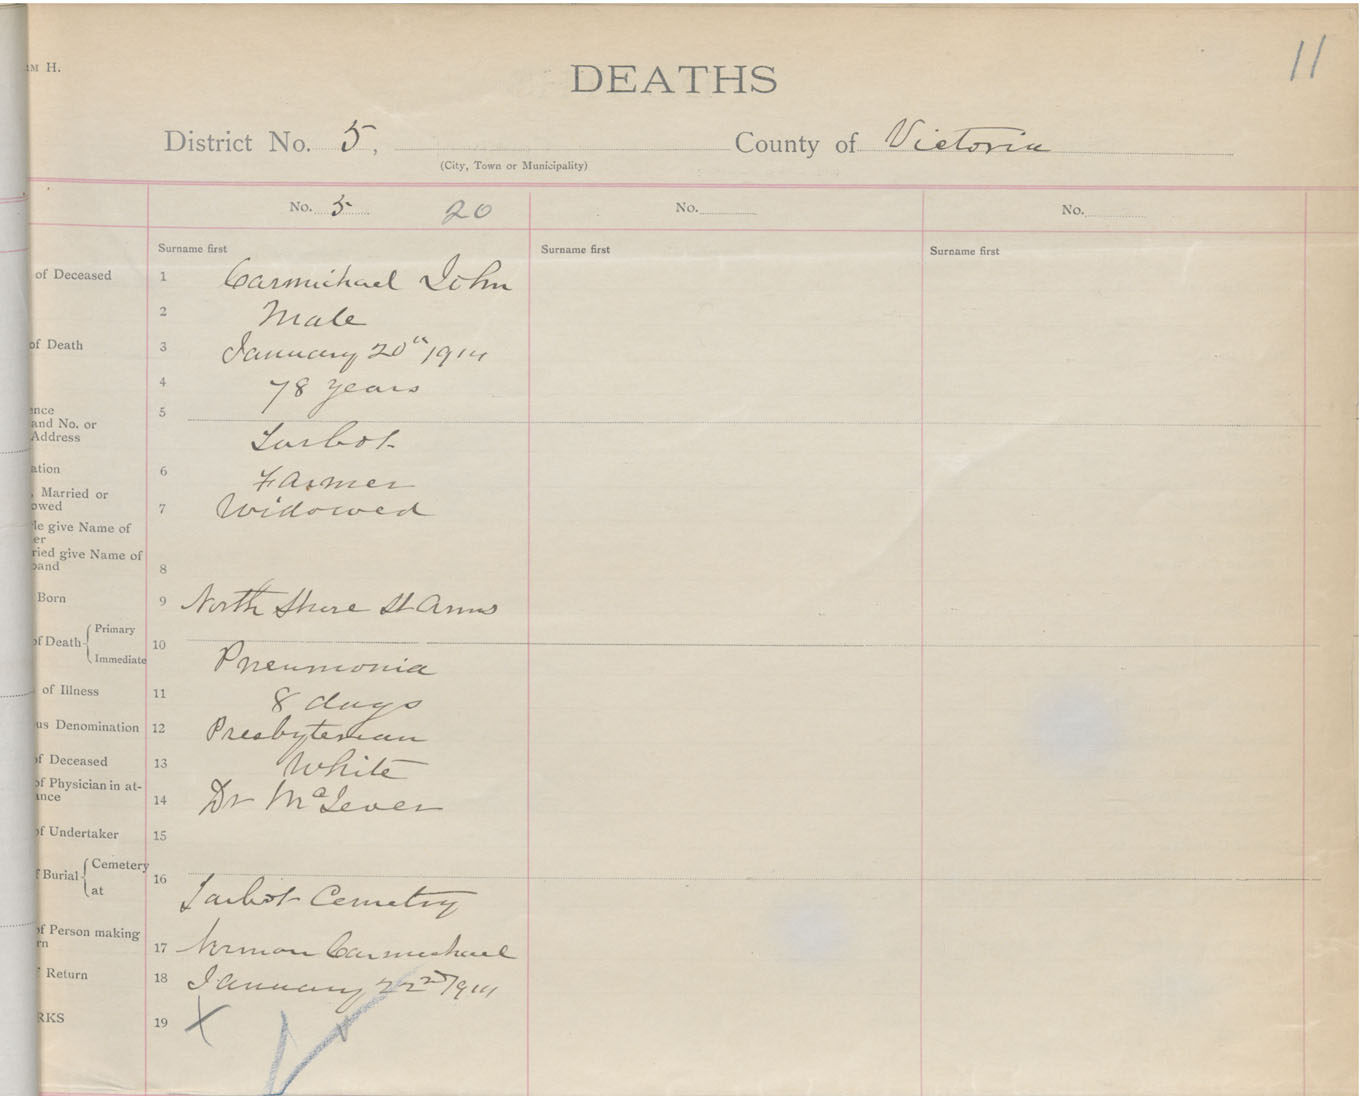 RM H.
11
DEATHS
District No. 5, County of Victoria
(City, Town or Municipality)
No. 5 20 No. No.
Surname first Surname first Surname first
of Deceased 1 Carmichael John
2 Male
of Death 3 January 20th 1914
4 78 years
ence 5
and No. or
Address
Tarbot
ation 6 Farmer
, Married or
owed 7 Widowed
le give Name of
er
ried give Name of
band 8
Born 9 North Shore St Anns
of Death Primary 10
Immediate Pneumonia
of Illness 11 8 days
us Denomination 12 Presbyterian
of Deceased 13 White
of Physician in at-
ance 14 Dr McIever
of Undertaker 15
f Burial Cemetery 16
at Tarbot Cemetry
of Person making
rn 17 Norman Carmichael
f Return 18 January 22nd 1914
RKS 19 X